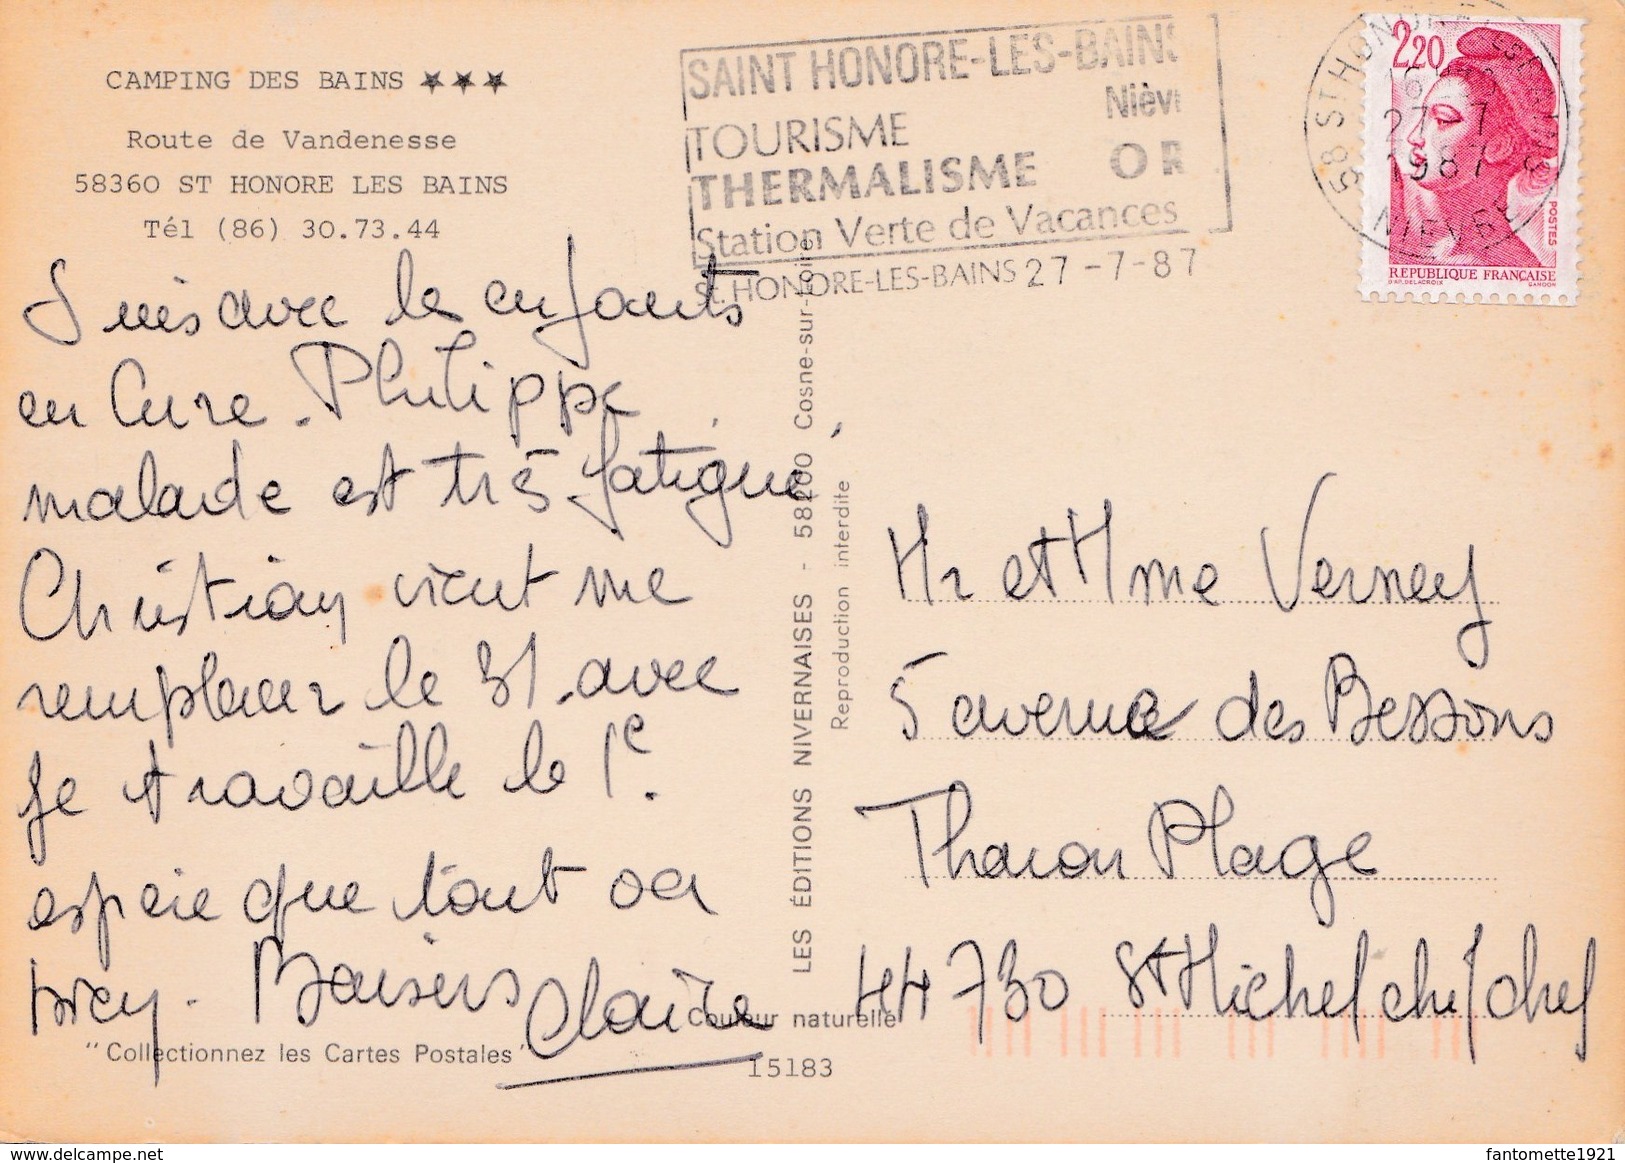 CAMPING DES BAINS ★★★
Route de Vandenesse
58360 ST HONORE LES BAINS
Tél (86) 30.73.44
Suis avec les enfants
en Cure. Philippe
malade est très fatigué
Christian vient me
remplacer le 31. avec
je travaille le 1e.
espère que tout va
bien. Baisers Claire
"Collectionnez les Cartes Postales"
Couleur naturelle
15183
LES ÉDITIONS NIVERNAISES - 58200 Cosne-sur-Loire
Reproduction interdite
SAINT HONORE-LES-BAINS
Nièv
TOURISME
THERMALISME OR
Station Verte de Vacances
St. HONORE-LES-BAINS 27-7-87
58 ST HONORE
27-7
1987
NIEVRE
2,20
POSTES
REPUBLIQUE FRANÇAISE
D'AP. DELACROIX GANDON
Mr et Mme Verney
5 avenue des Bessons
Tharon Plage
44730 St Michel chef chef
fantomette1921